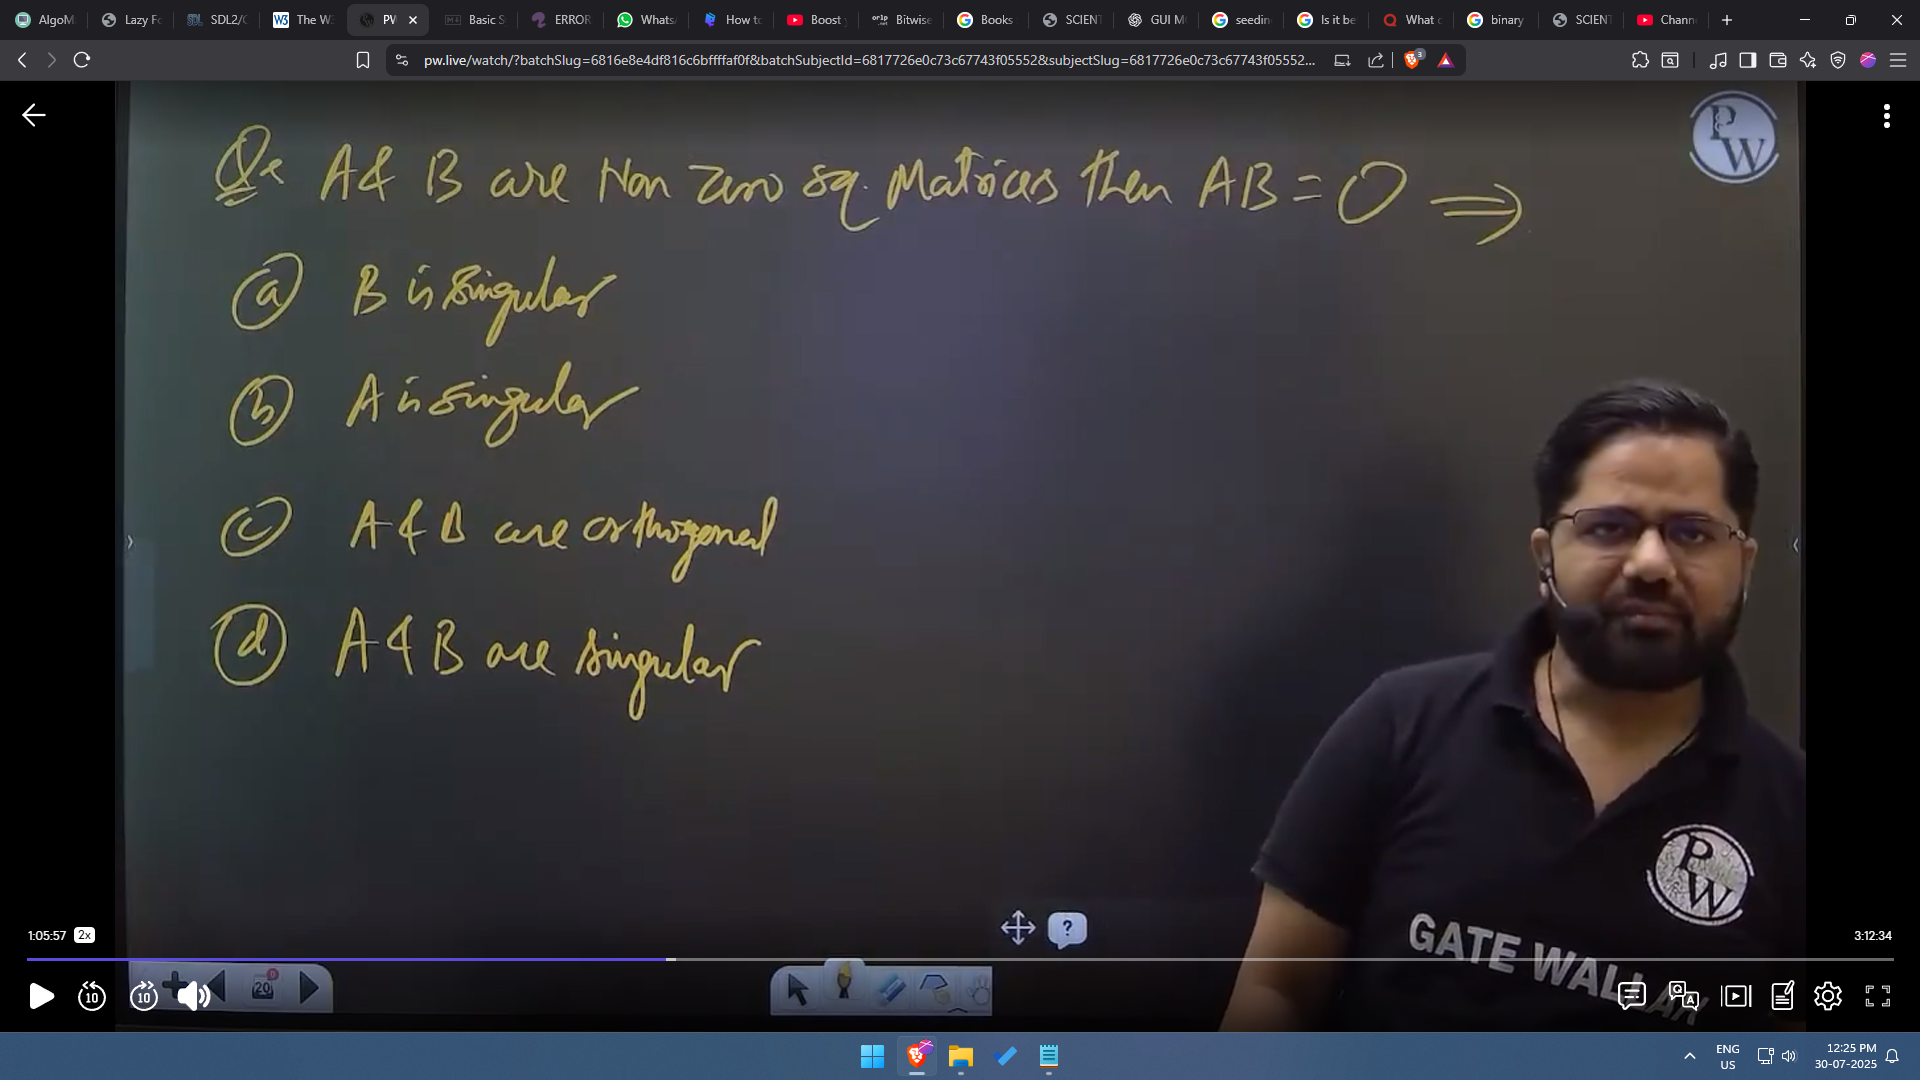 AlgoM
Lazy Fo
SDL2/C
The W
PW
Basic S
ERROR
Whats
How to
Boost
Bitwise
Books
SCIENT
GUI M
seedin
Is it be
What
binary
SCIENT
Chann
pw.live/watch/?batchSlug=6816e8e4df816c6bffffaf0f&batchSubjectId=6817726e0c73c67743f05552&subjectSlug=6817726e0c73c67743f05552...
3
PW
Q: A & B are Non zero sq. Matrices then AB = O ⇒
(a) B is singular
(b) A is singular
(c) A & B are orthogonal
(d) A & B are singular
PW
GATE WALLAH
?
1:05:57 2x
3:12:34
20
0
10
10
ENG
US
12:25 PM
30-07-2025